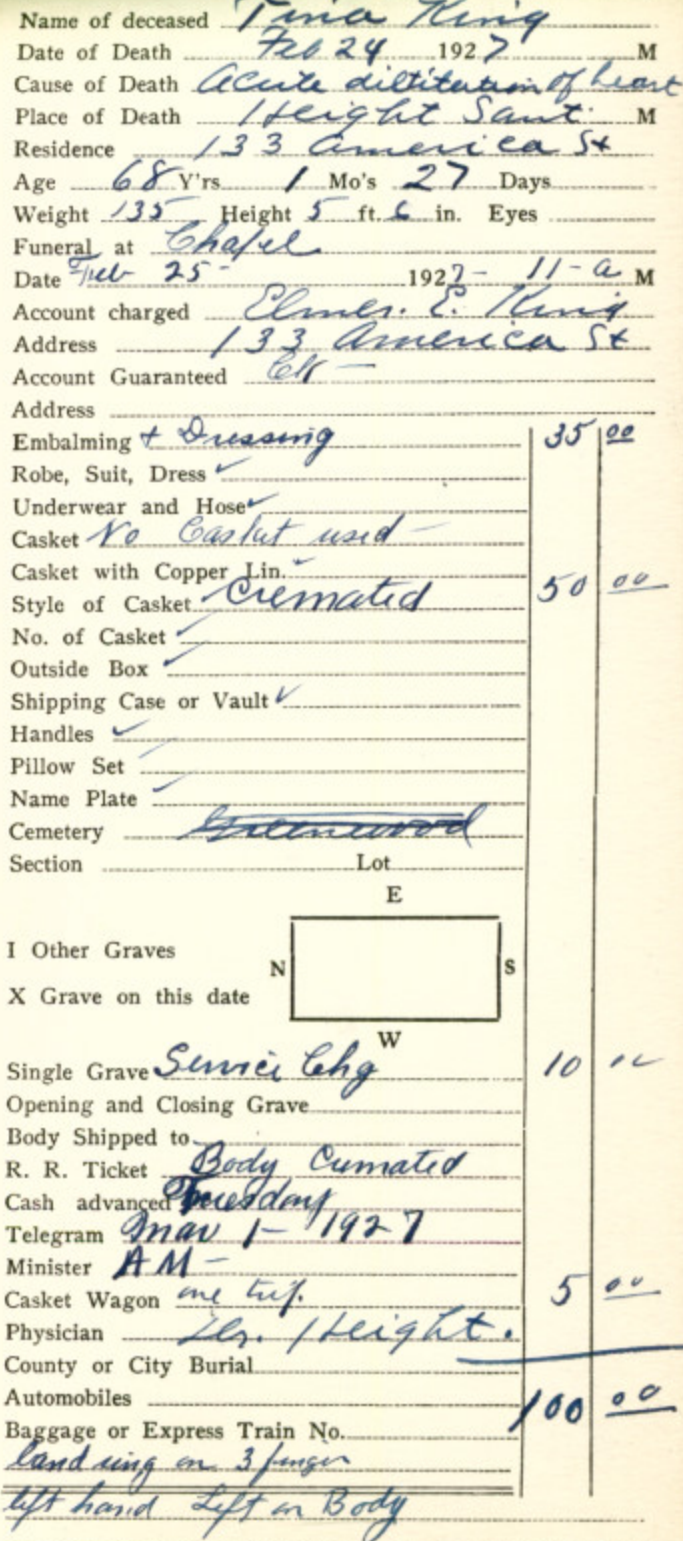 Name of deceased Tina King
Date of Death Feb 24 1927 M
Cause of Death Acute diltitation of heart
Place of Death Height Sant. M
Residence 133 America St
Age 68 Y'rs 1 Mo's 27 Days
Weight 135 Height 5 ft. 6 in. Eyes
Funeral at Chapel
Date Feb 25- 1927- 11-a M
Account charged Elmer. E. King
Address 133 America St
Account Guaranteed
Address
Embalming + Dressing 35 00
Robe, Suit, Dress ✓
Underwear and Hose ✓
Casket No Casket used -
Casket with Copper Lin. ✓
Style of Casket Cremated 50 00
No. of Casket ✓
Outside Box ✓
Shipping Case or Vault ✓
Handles ✓
Pillow Set ✓
Name Plate ✓
Cemetery Greenwood
Section Lot
E
I Other Graves
N S
X Grave on this date
W
Single Grave Service Chg 10 00
Opening and Closing Grave
Body Shipped to
R. R. Ticket Body Cumated
Cash advanced Tuesday
Telegram Mar 1- 1927
Minister AM -
Casket Wagon one trip. 5 00
Physician Dr. Height.
County or City Burial
Automobiles 100 00
Baggage or Express Train No.
band ring on 3 finger
left hand Left on Body